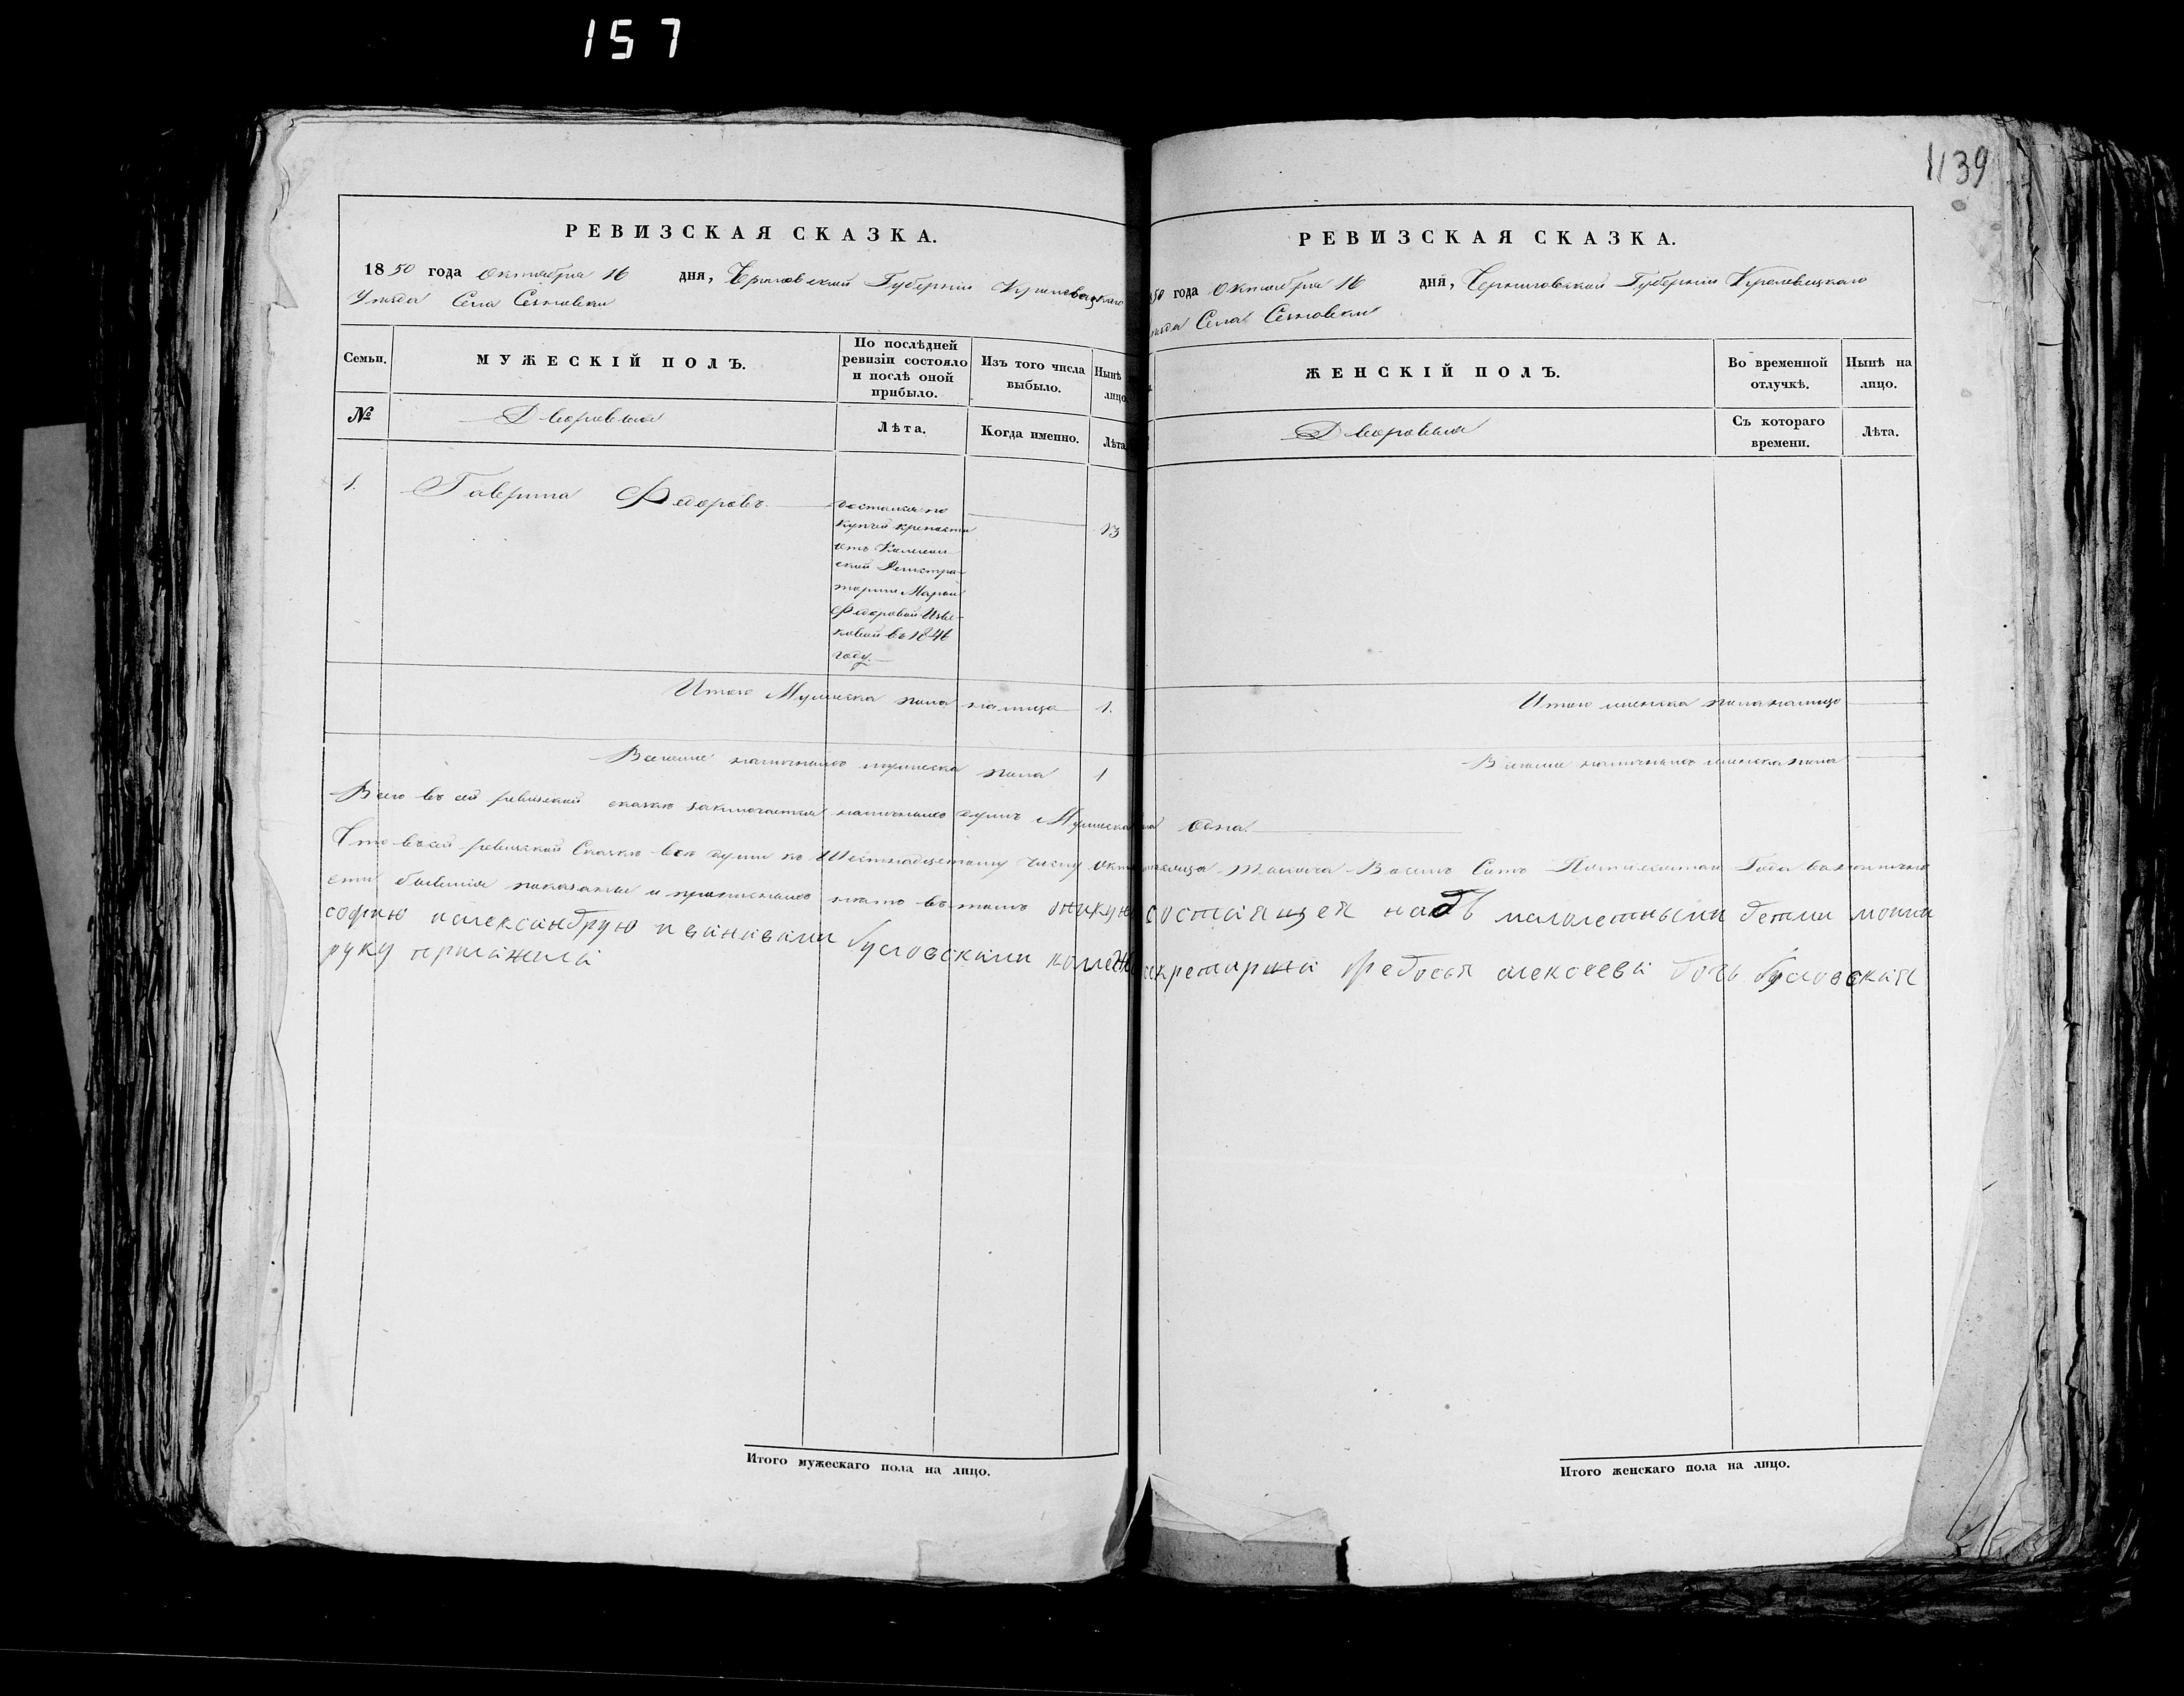 157
1139
РЕВИЗСКАЯ СКАЗКА.
1850 года Октября 16 дня, Черниговской Губерніи Кролевецкаго
Уезда Села
Семьи.
МУЖЕСКІЙ ПОЛЪ.
По послѣдней
ревизіи состояло
и послѣ оной
прибыло.
Изъ того числа
выбыло.
Нынѣ
лицо
№
Дворовыя
Лѣта.
Когда именно.
Лѣта
1.
Гаврила Федоровъ
достался по
купчей крепости
отъ Коллеж
ской Регистра-
торши Марьи
Федоровой
въ 1846
году.
13
Итого Мужеска пола налицо 1.
Вообще наличныхъ мужеска пола 1
РЕВИЗСКАЯ СКАЗКА.
50 года Октября 16 дня, Черниговской Губерніи Кролевецкаго
Села
ЖЕНСКІЙ ПОЛЪ.
Во временной
отлучкѣ.
Нынѣ на
лицо.
Дворовыя
Съ котораго
времени.
Лѣта.
Итого женска пола налицо
Вообще наличныхъ женска пола
Всего въ сей ревизской сказке заключается наличныхъ душъ Мужеска одна.
Что в сей ревизской Сказке все души къ Шестнадцатому числу Тысяча Восемь Сотъ Пятидесятаго Года
показаны и прописныхъ нетъ въ томъ состаящея надъ малолетными детми моими
софию иалександрую ивановами бусловскими секретарша федосья алексеева дочь бусловская
руку прилажила
Итого мужескаго пола на лицо.
Итого женскаго пола на лицо.